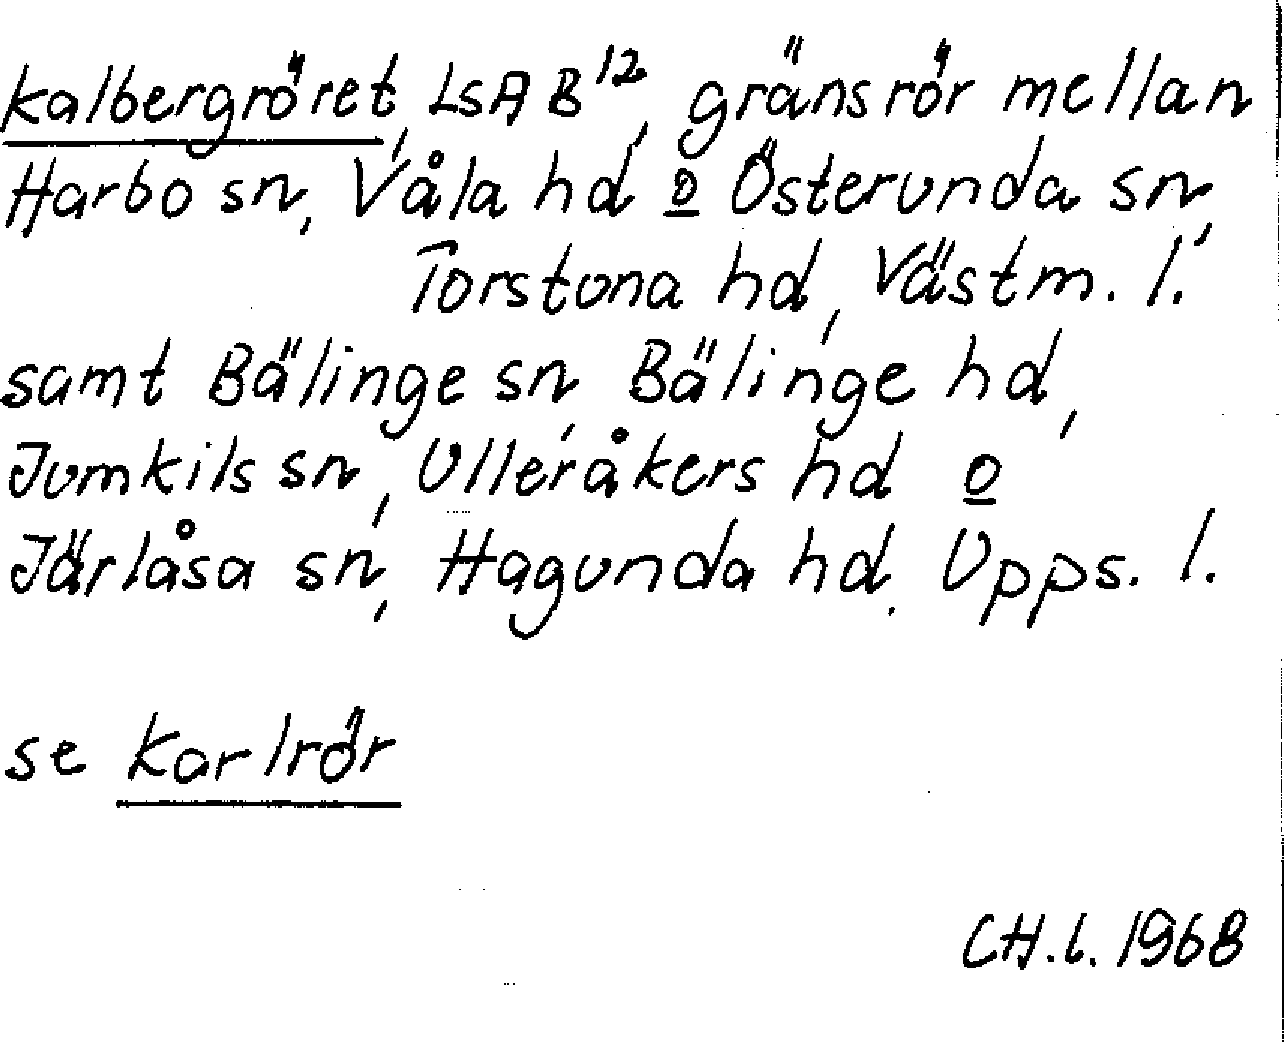 Kalbergröret, LSA B¹², gränsrör mellan
Harbo sn, Våla hd o Österunda sn,
Torstuna hd, Västm. l.
samt Bälinge sn, Bälinge hd,
Jumkils sn, Ulleråkers hd o
Järlåsa sn, Hagunda hd. Upps. l.
se Karlrör
CH.l. 1968